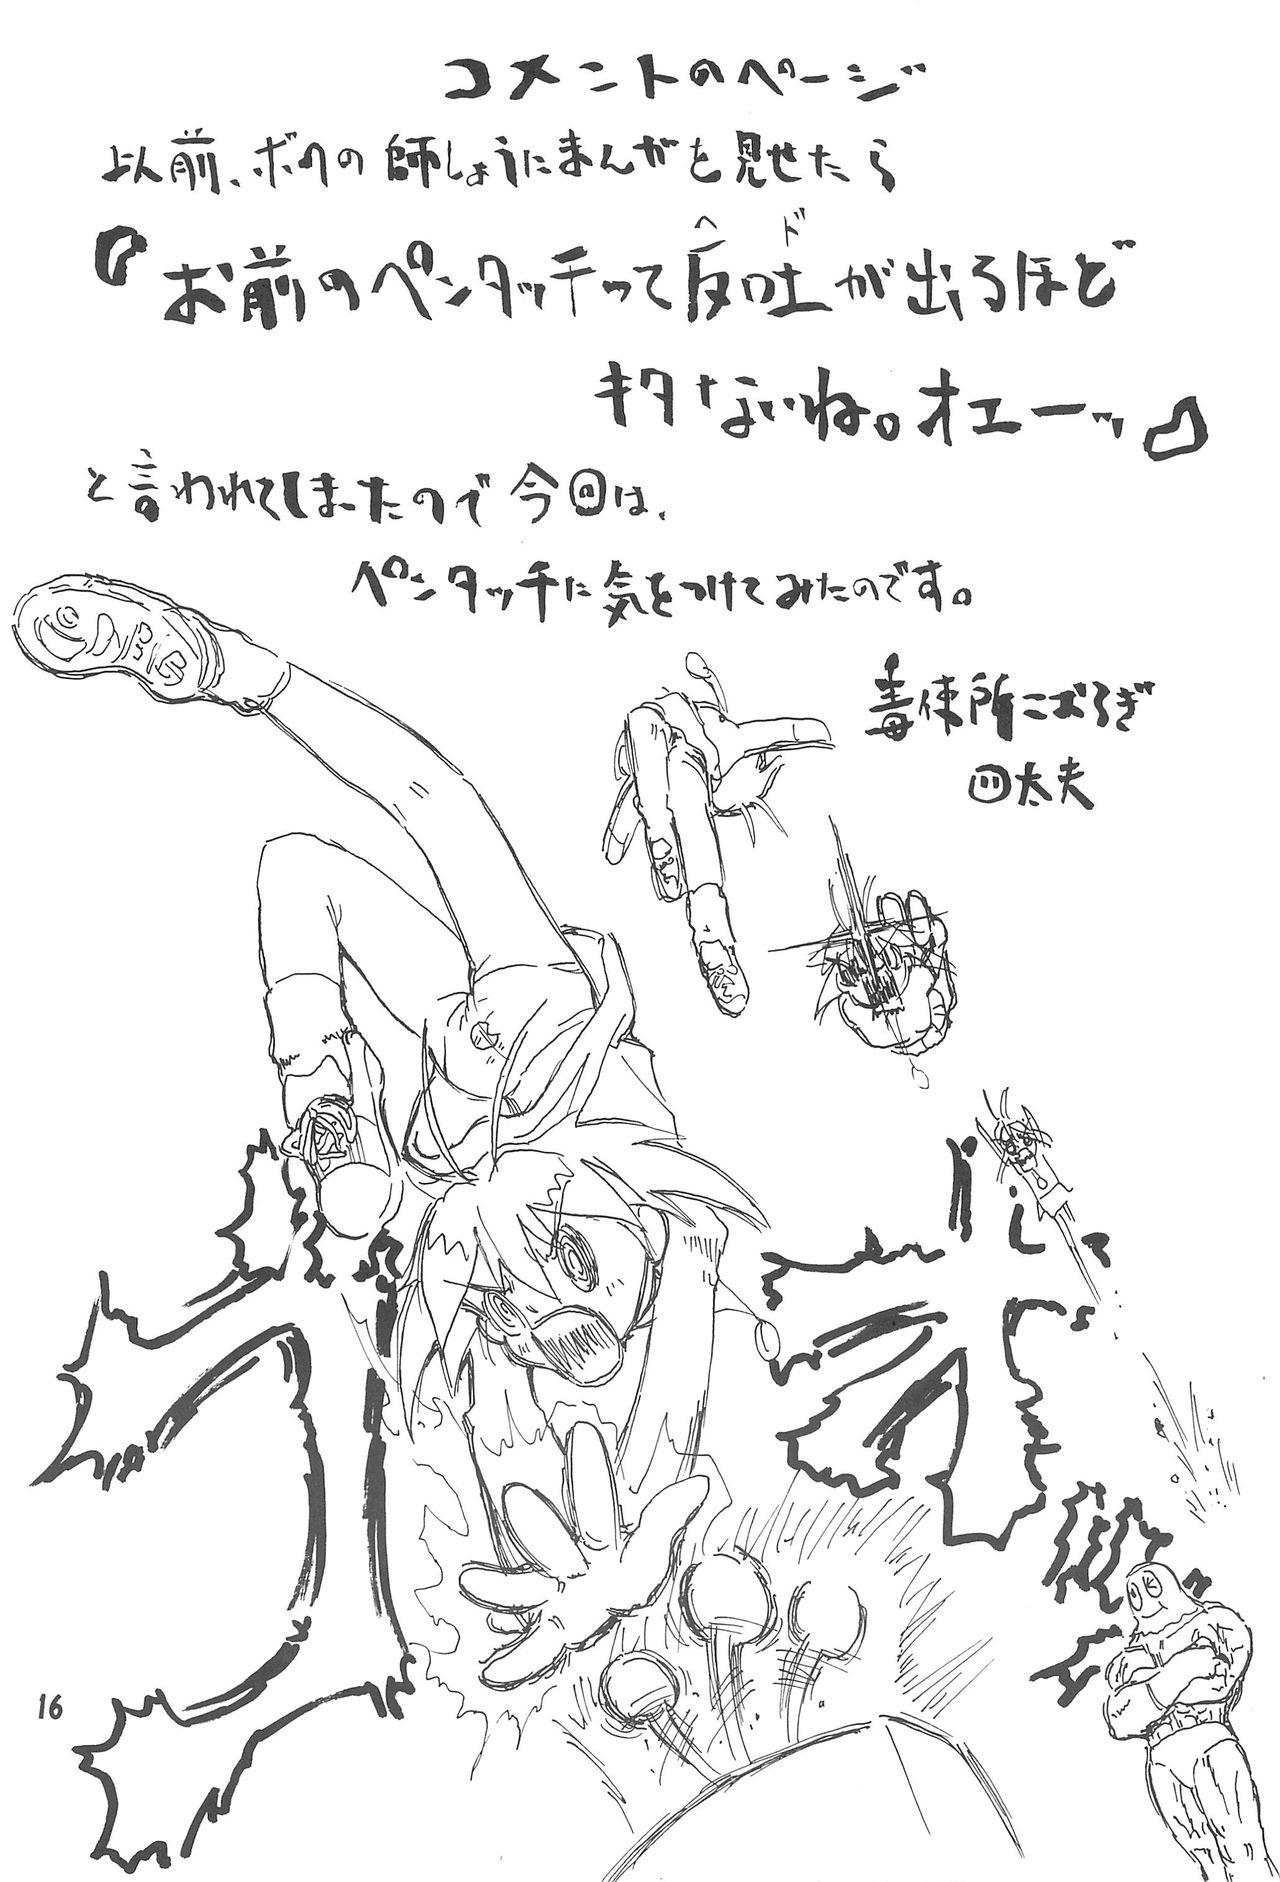 コメントのページ
以前、ボクの師しょうにまんがを見せたら
『お前のペンタッチって反吐が出るほど
ヘド
キタないね。オエーッ』
と言われてしまったので今回は、
ペンタッチに気をつけてみたのです。
毒使所こおろぎ
太夫
16